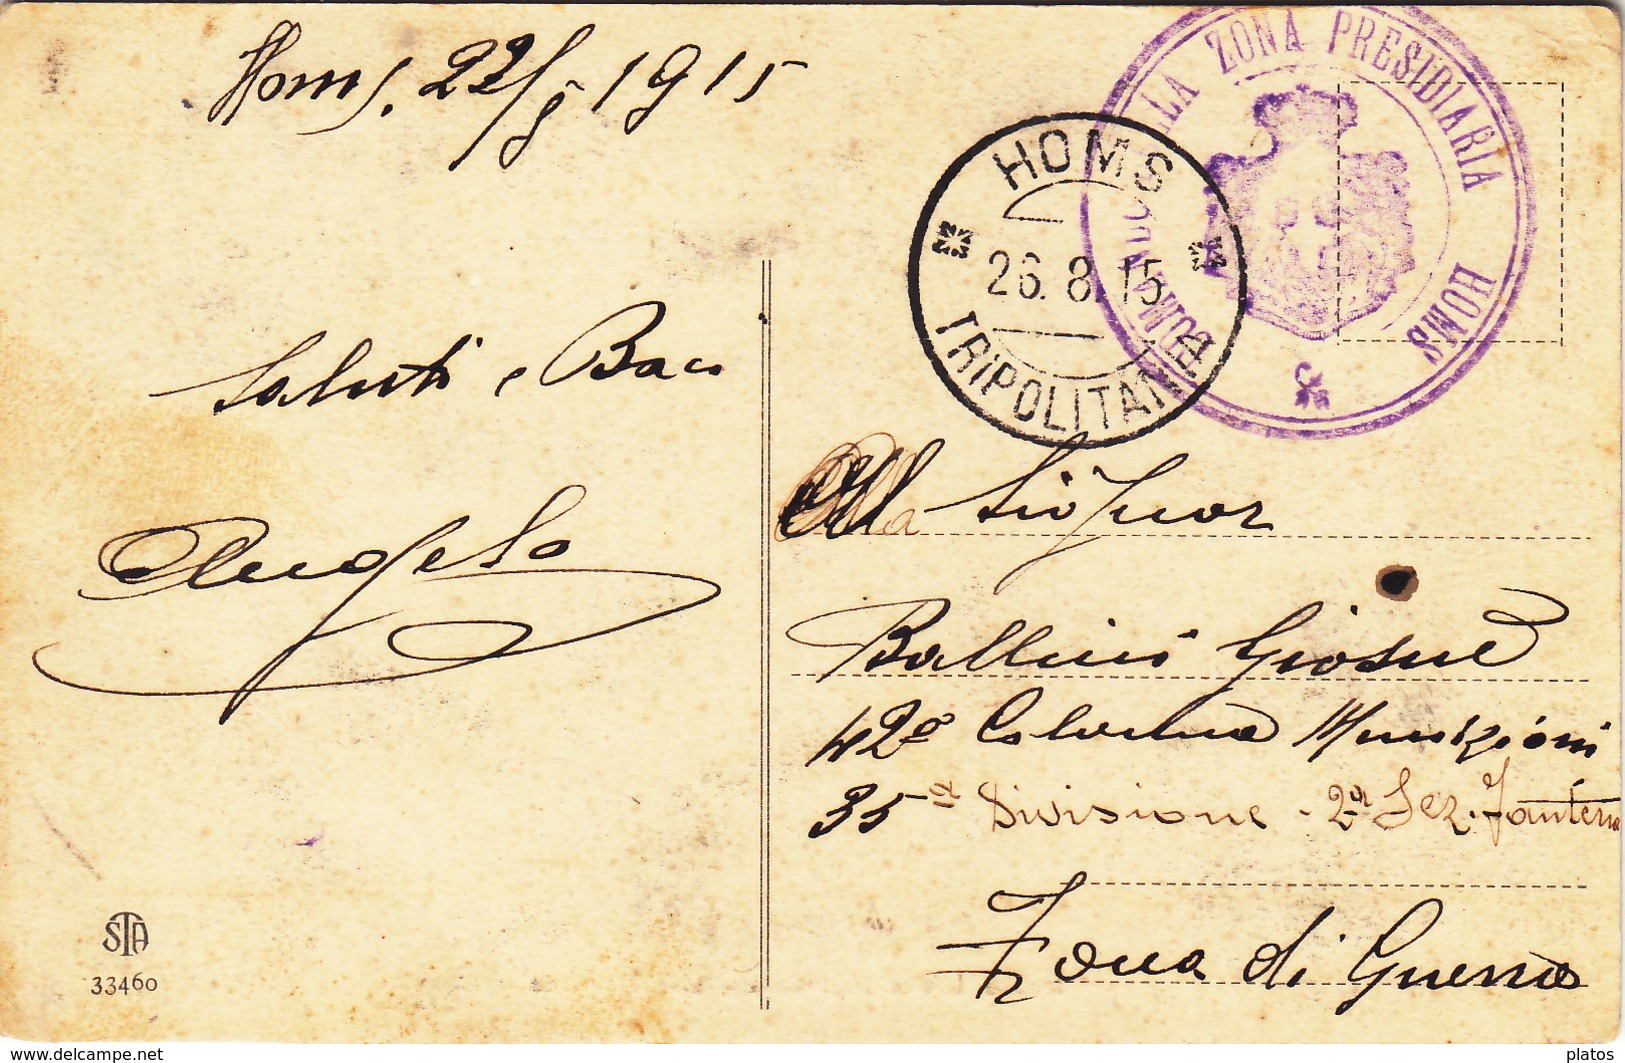 Homs. 22/8 1915
Saluti e Baci
Angelo
STA
33460
HOMS
26. 8. 15
TRIPOLITANIA
COMANDO DELLA ZONA PRESIDIARIA
HOMS
Al Signor
Ballini Giosué
42ª Colonna Munizioni
35ª Divisione - 2ª Sez. Fanteria
Zona di Guerra
www.delcampe.net
platos